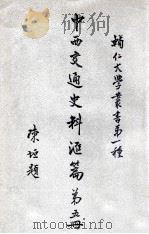 輔仁大学叢書第一種
中西交通史料滙篇 第五冊
陳垣題